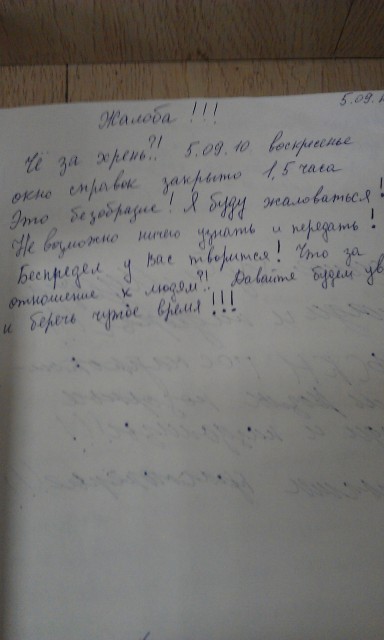 5.09.1
Жалоба !!!
Чё за хрень?! 5.09.10 воскресенье
окно справок закрыто 1,5 часа
Это безобразие! Я буду жаловаться!
Не возможно ничего узнать и передать!
Беспредел у Вас творится! Что за
отношение к людям?! Давайте будем ув
и беречь чужое время!!!